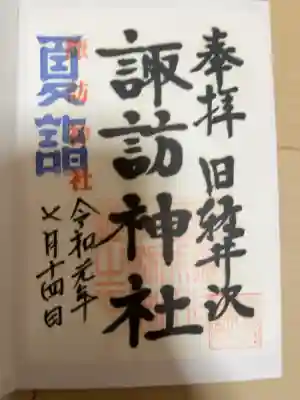 奉拝
旧軽井沢
諏訪神社
夏詣
諏訪神社
令和元年
七月十四日